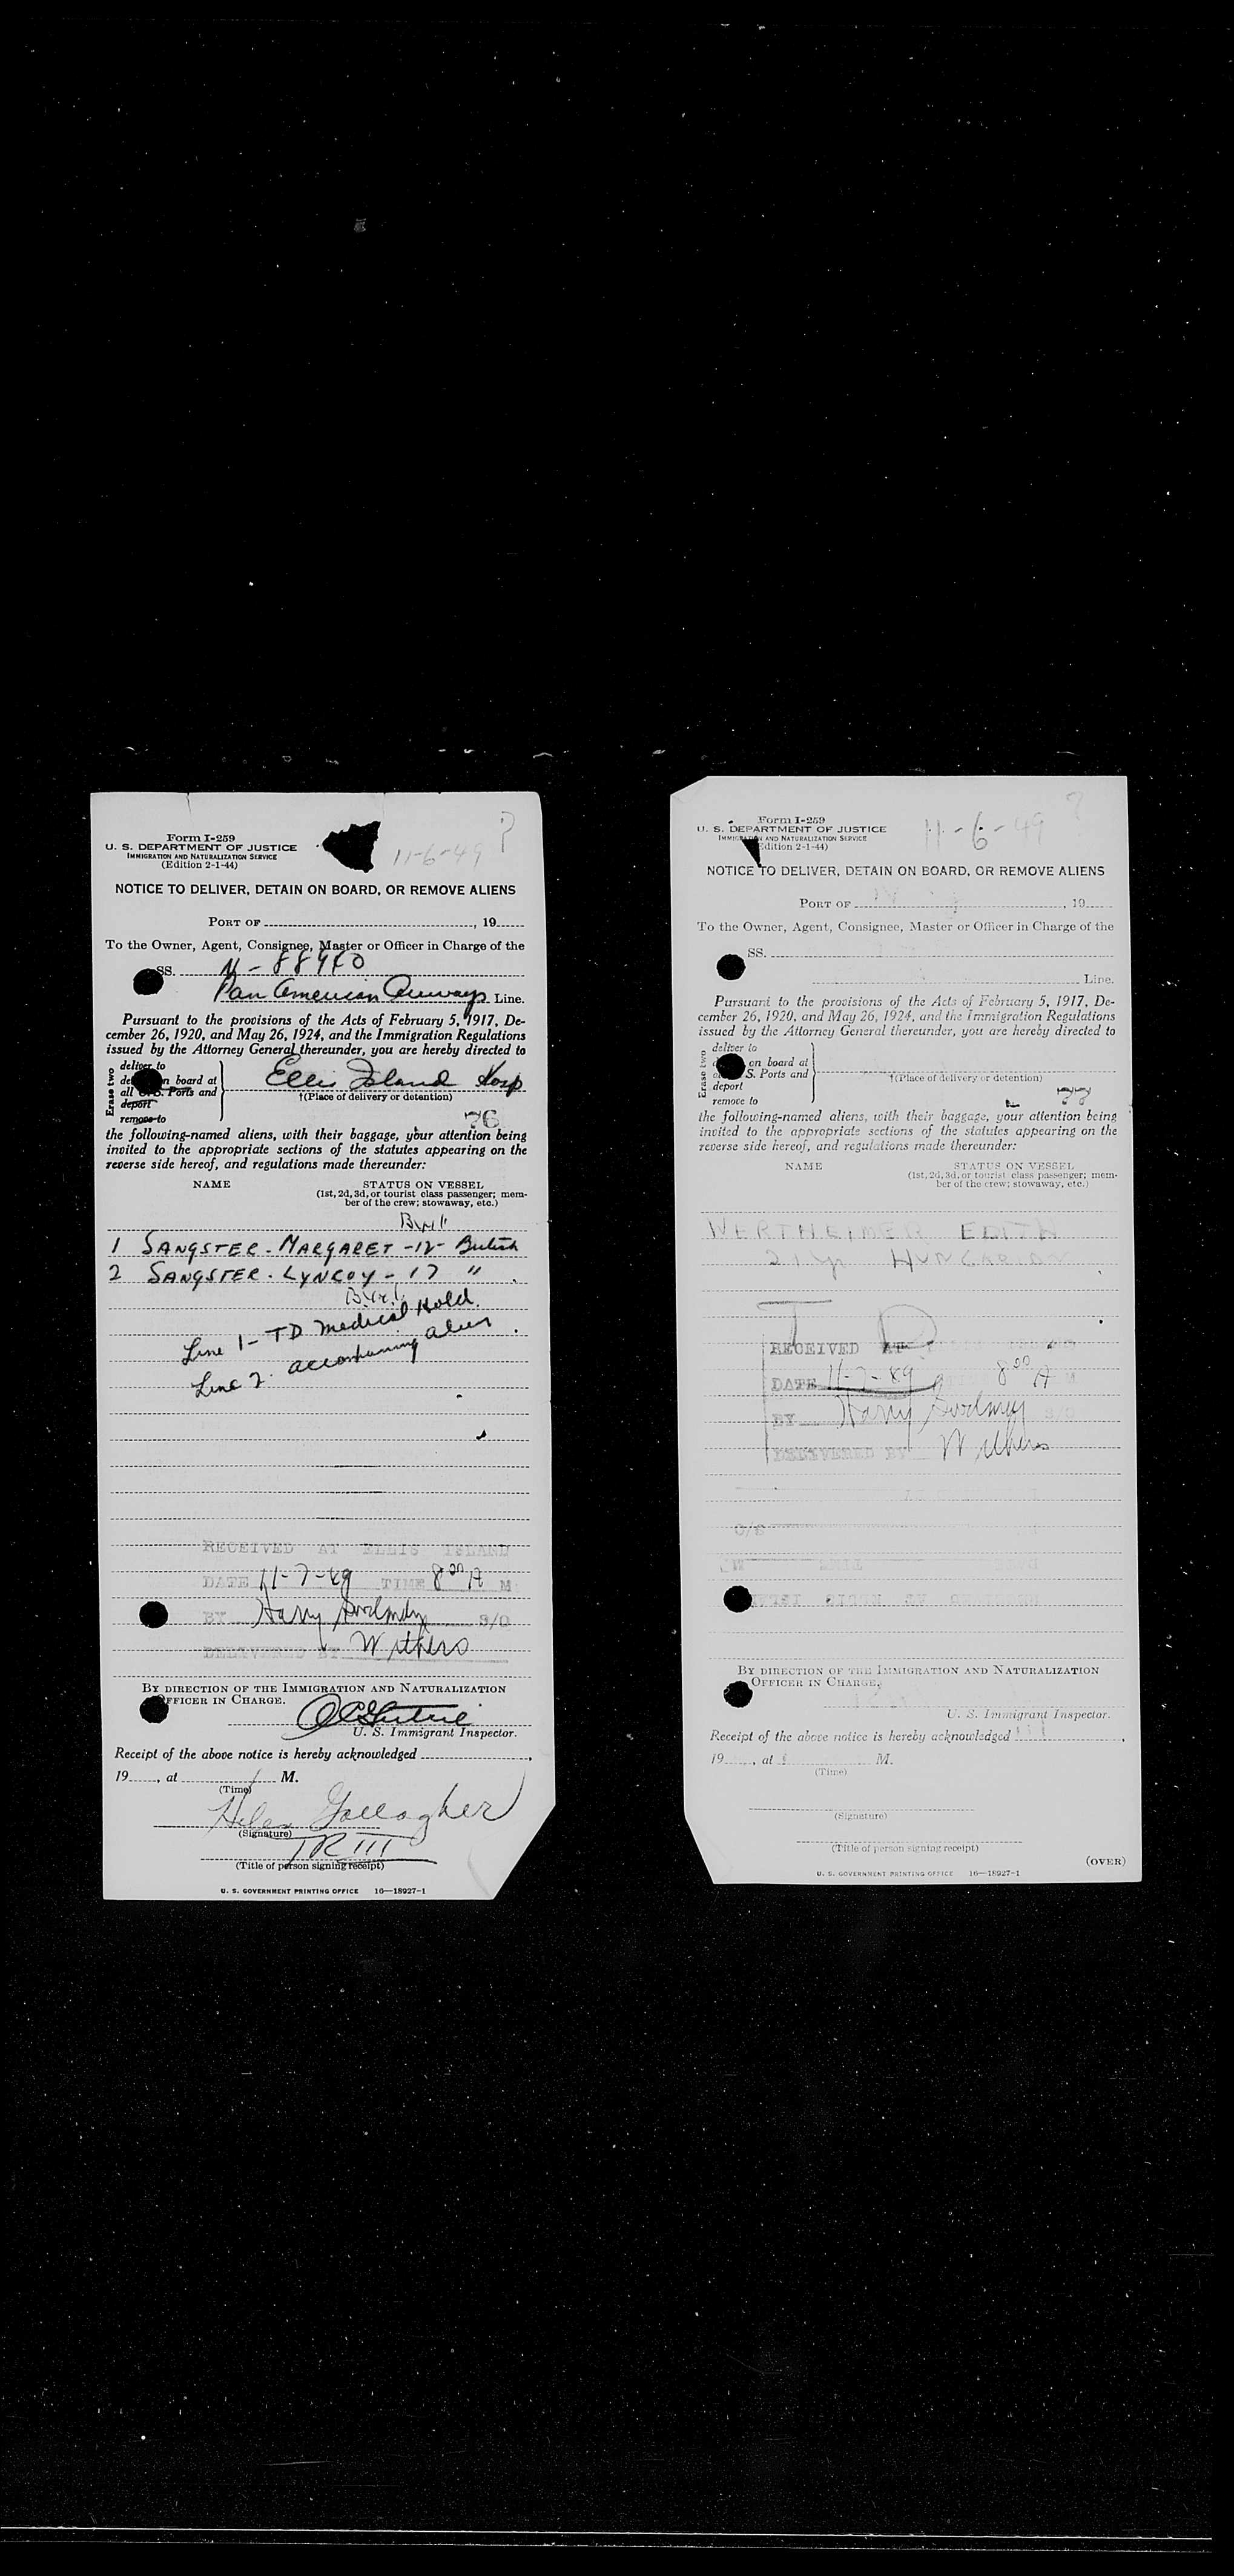 Form I-259
U. S. DEPARTMENT OF JUSTICE
IMMIGRATION AND NATURALIZATION SERVICE
(Edition 2-1-44)
11-6-49 ?
NOTICE TO DELIVER, DETAIN ON BOARD, OR REMOVE ALIENS
PORT OF , 19
To the Owner, Agent, Consignee, Master or Officer in Charge of the
SS. N-
Pan American Airways Line.
Pursuant to the provisions of the Acts of February 5, 1917, De-
cember 26, 1920, and May 26, 1924, and the Immigration Regulations
issued by the Attorney General thereunder, you are hereby directed to
Erase two
deliver to
on board at
all Ports and
deport
remove to
Ellis Island Hosp
†(Place of delivery or detention)
76
the following-named aliens, with their baggage, your attention being
invited to the appropriate sections of the statutes appearing on the
reverse side hereof, and regulations made thereunder:
NAME STATUS ON VESSEL
(1st, 2d, 3d, or tourist class passenger; mem-
ber of the crew; stowaway, etc.)
1 SANGSTER - MARGARET -12- British
2 SANGSTER - LYNCOY - 17 "
Line 1 - TD Medical Hold.
Line 2. accompanying alien.
RECEIVED AT ELLIS ISLAND
DATE 11-7-49 TIME 8 00 A M
BY Harry S/O
DELIVERED BY Withers
BY DIRECTION OF THE IMMIGRATION AND NATURALIZATION
OFFICER IN CHARGE.
U. S. Immigrant Inspector.
Receipt of the above notice is hereby acknowledged ,
19 , at M.
(Time)
Helen Gallagher
(Signature)
TR III
(Title of person signing receipt)
U. S. GOVERNMENT PRINTING OFFICE 16—18927-1
Form I-259
U. S. DEPARTMENT OF JUSTICE
IMMIGRATION AND NATURALIZATION SERVICE
(Edition 2-1-44)
11-6-49 ?
NOTICE TO DELIVER, DETAIN ON BOARD, OR REMOVE ALIENS
PORT OF , 19
To the Owner, Agent, Consignee, Master or Officer in Charge of the
SS.
Line.
Pursuant to the provisions of the Acts of February 5, 1917, De-
cember 26, 1920, and May 26, 1924, and the Immigration Regulations
issued by the Attorney General thereunder, you are hereby directed to
Erase two
deliver to
on board at
S. Ports and
deport
remove to
†(Place of delivery or detention)
77
the following-named aliens, with their baggage, your attention being
invited to the appropriate sections of the statutes appearing on the
reverse side hereof, and regulations made thereunder:
NAME STATUS ON VESSEL
(1st, 2d, 3d, or tourist class passenger; mem-
ber of the crew; stowaway, etc.)
WERTHEIMER EDITH
21 yr HUNGARIAN
T D
RECEIVED AT
DATE 11-7-49 8 00 A M
BY Harry S/O
DELIVERED BY Withers
BY DIRECTION OF THE IMMIGRATION AND NATURALIZATION
OFFICER IN CHARGE.
U. S. Immigrant Inspector.
Receipt of the above notice is hereby acknowledged ,
19 , at M.
(Time)
(Signature)
(Title of person signing receipt)
(OVER)
U. S. GOVERNMENT PRINTING OFFICE 16—18927-1